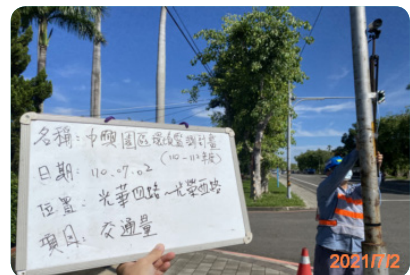 名稱：中興園區環境監測計畫
（110-112年度）
日期：110.07.02
位置：光華四路～光榮西路
項目：交通量
2021/7/2